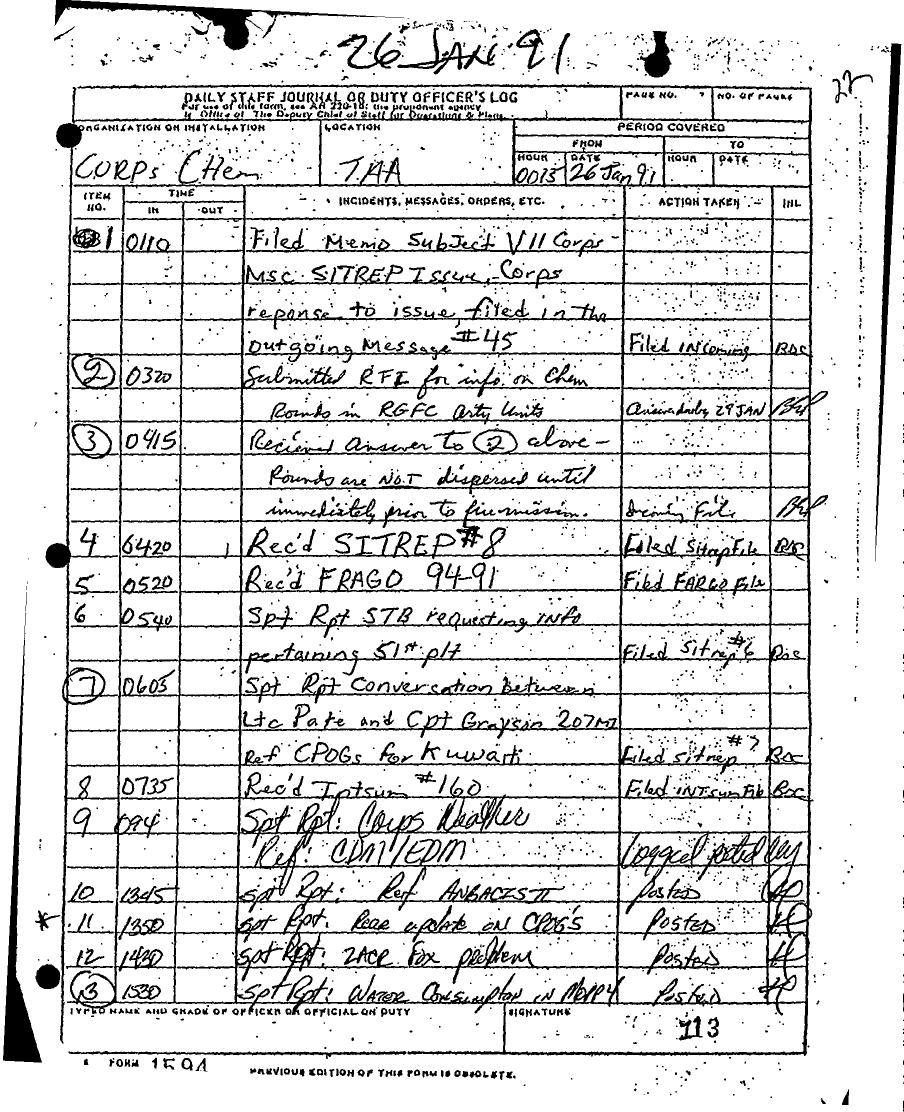 26 JAN 91
22
DAILY STAFF JOURNAL OR DUTY OFFICER'S LOG
For use of this form, see AR 220-15; the proponent agency
is Office of The Deputy Chief of Staff for Operations & Plans.
PAGE NO.
NO. OF PAGES
ORGANIZATION OR INSTALLATION
CORPs CHem
LOCATION
TAA
PERIOD COVERED
FROM
TO
HOUR
DATE
HOUR
DATE
0015
26 Jan 91
ITEM NO.
TIME
IN
OUT
INCIDENTS, MESSAGES, ORDERS, ETC.
ACTION TAKEN
INL
1 0110 Filed Memo Subject VII Corps
Msc SITREP Issue, Corps
reponse to issue, filed in the
outgoing Message #45 Filed INcoming BDC
2 0320 Submitted RFI for info on Chem
Rounds in RGFC arty Units 29 JAN
3 0415 Recieved answer to 2 above -
Rounds are NOT dispersed until
immediately prior to fire mission. Incoming File
4 0420 Rec'd SITREP #8 Filed Sitrep File BDC
5 0520 Rec'd FRAGO 94-91 Filed FARGO File
6 0540 Spt Rpt STB requesting INFO
pertaining 51st plt Filed Sitrep #6 BDC
7 0605 Spt Rpt Conversation between
Ltc Pate and Cpt Grayson 207MI
Ref CPOGs for Kuwarti Filed sitrep #7 BDC
8 0735 Rec'd Intsum #160 Filed INTsum File BDC
9 094 Spt Rpt: Corps Weather
Ref: CDM/EDM Logged posted
10 1345 Spt Rpt: Ref ANBACIS II Posted
* 11 1350 Spt Rpt: Rear update on CPOG'S Posted
12 1430 Spt Rpt: 2ACR Fox problem Posted
13 1530 Spt Rpt: Water Consumption in MOPP4 Posted
TYPED NAME AND GRADE OF OFFICER OR OFFICIAL ON DUTY
SIGNATURE
113
FORM 1594
PREVIOUS EDITION OF THIS FORM IS OBSOLETE.